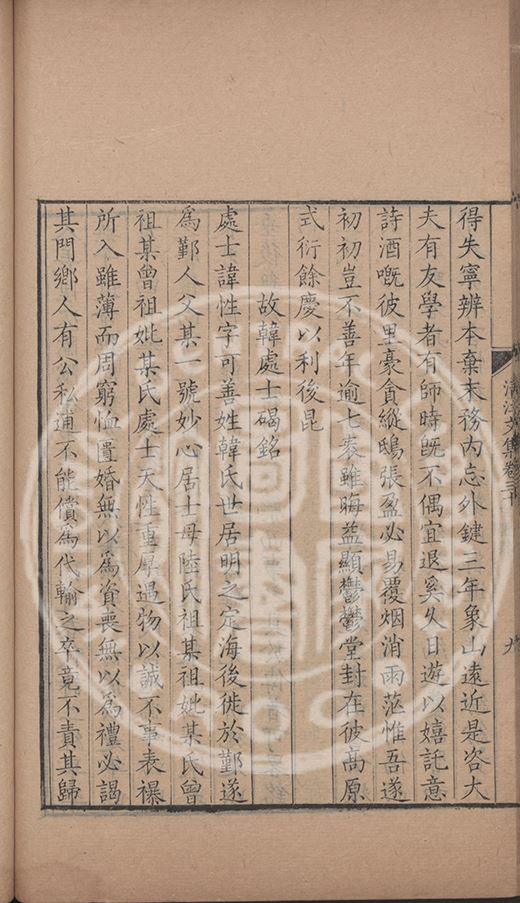 得失寧辨本棄末務内忘外鍵三年象山遠近是咨大
夫有友學者有師時旣不偶宜退奚久日遊以嬉託意
詩酒嘅彼里豪貪縱鴟張盈必易覆烟消雨茫惟吾遂
初初豈不善年逾七袠雖晦益顯鬱鬱堂封在彼高原
式衍餘慶以利後昆
故韓處士碣銘
處士諱性字可善姓韓氏世居明之定海後徙於鄞遂
爲鄞人父某一號妙心居士母陸氏祖某祖妣某氏曾
祖某曾祖妣某氏處士天性重厚遇物以誠不事表襮
所入雖薄而周窮恤匱婚無以爲資喪無以爲禮必謁
其門鄉人有公私逋不能償爲代輸之卒竟不責其歸
清江文集卷三十
九